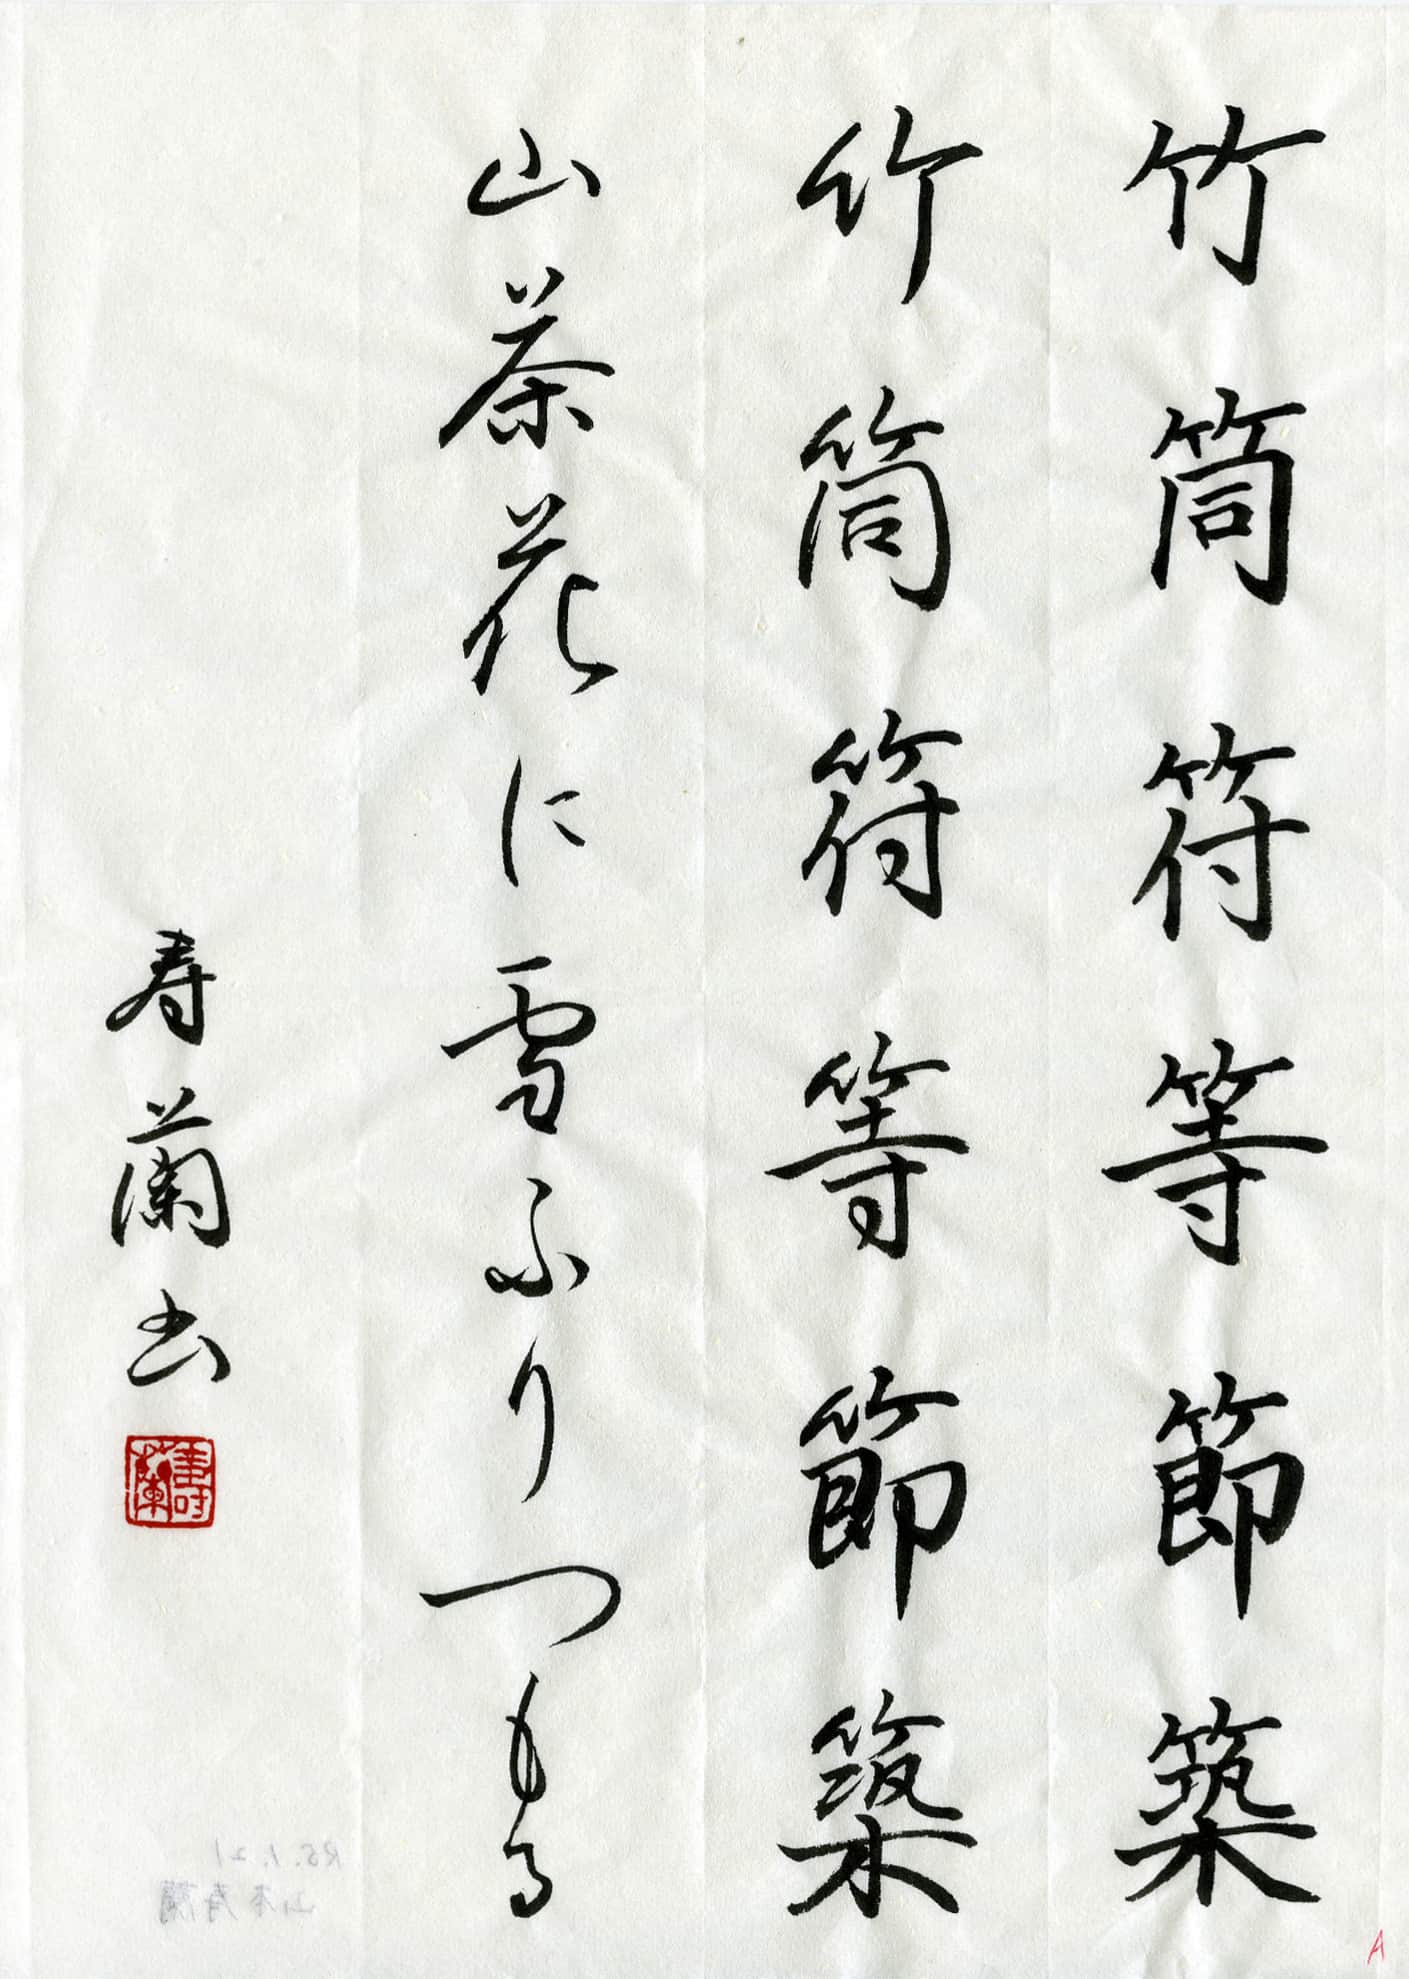 竹筒符等節築
竹筒符等節築
山茶花に雪ふりつもる
寿蘭書
壽蘭
R5.1.21
山本寿蘭
A